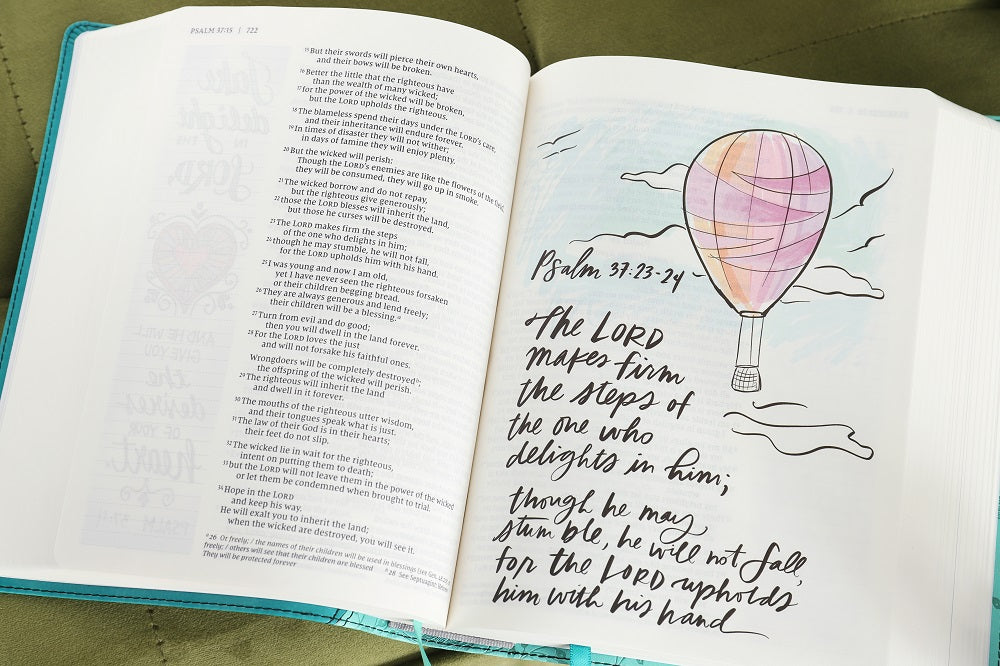 PSALM 37:15 | 722
15But their swords will pierce their own hearts,
and their bows will be broken.
16Better the little that the righteous have
than the wealth of many wicked;
17for the power of the wicked will be broken,
but the LORD upholds the righteous.
18The blameless spend their days under the LORD's care,
and their inheritance will endure forever.
19In times of disaster they will not wither;
in days of famine they will enjoy plenty.
20But the wicked will perish:
Though the LORD's enemies are like the flowers of the field,
they will be consumed, they will go up in smoke.
21The wicked borrow and do not repay,
but the righteous give generously;
22those the LORD blesses will inherit the land,
but those he curses will be destroyed.
23The LORD makes firm the steps
of the one who delights in him;
24though he may stumble, he will not fall,
for the LORD upholds him with his hand.
25I was young and now I am old,
yet I have never seen the righteous forsaken
or their children begging bread.
26They are always generous and lend freely;
their children will be a blessing.a
27Turn from evil and do good;
then you will dwell in the land forever.
28For the LORD loves the just
and will not forsake his faithful ones.
Wrongdoers will be completely destroyedb;
the offspring of the wicked will perish.
29The righteous will inherit the land
and dwell in it forever.
30The mouths of the righteous utter wisdom,
and their tongues speak what is just.
31The law of their God is in their hearts;
their feet do not slip.
32The wicked lie in wait for the righteous,
intent on putting them to death;
33but the LORD will not leave them in the power of the wicked
or let them be condemned when brought to trial.
34Hope in the LORD
and keep his way.
He will exalt you to inherit the land;
when the wicked are destroyed, you will see it.
a 26 Or freely; / the names of their children will be used in blessings (see Gen.
freely; / others will see that their children are blessed b 28 See Septuagint;
They will be protected forever
Take
delight
IN THE
LORD
AND HE WILL
GIVE YOU
the
desires
OF YOUR
heart.
PSALM 37:4
Psalm 37:23-24
The LORD
makes firm
the steps of
the one who
delights in him;
though he may
stumble, he will not fall,
for the LORD upholds
him with his hand